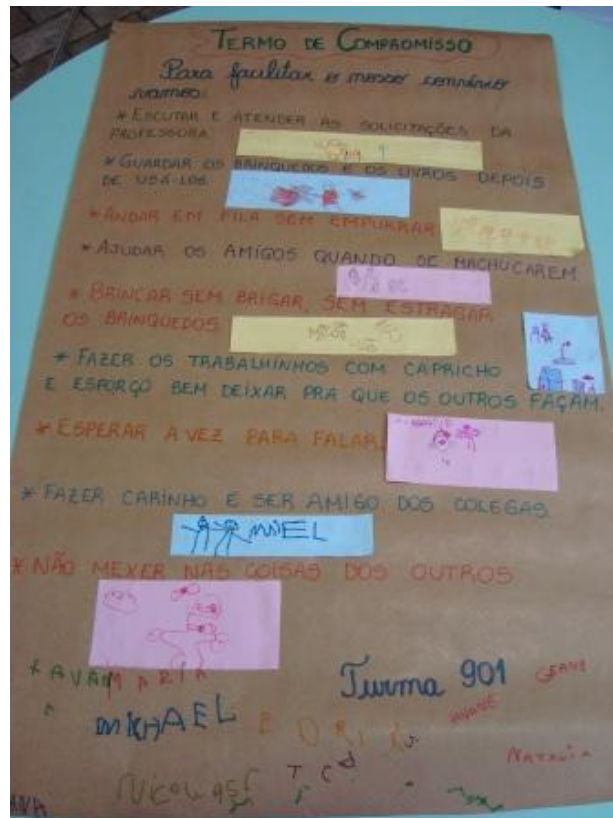 TERMO DE COMPROMISSO
Para facilitar o nosso convívio
vamos:
* ESCUTAR E ATENDER AS SOLICITAÇÕES DA
PROFESSORA.
* GUARDAR OS BRINQUEDOS E OS LIVROS DEPOIS
DE USÁ-LOS.
* ANDAR EM FILA SEM EMPURRAR.
* AJUDAR OS AMIGOS QUANDO SE MACHUCAREM.
* BRINCAR SEM BRIGAR, SEM ESTRAGAR
OS BRINQUEDOS.
* FAZER OS TRABALHINHOS COM CAPRICHO
E ESFORÇO SEM DEIXAR PRA QUE OS OUTROS FAÇAM.
* ESPERAR A VEZ PARA FALAR.
* FAZER CARINHO E SER AMIGO DOS COLEGAS.
* NÃO MEXER NAS COISAS DOS OUTROS.
MARIA
Turma 901
GEANE
MICHAEL
NATALIA
NICOLAS